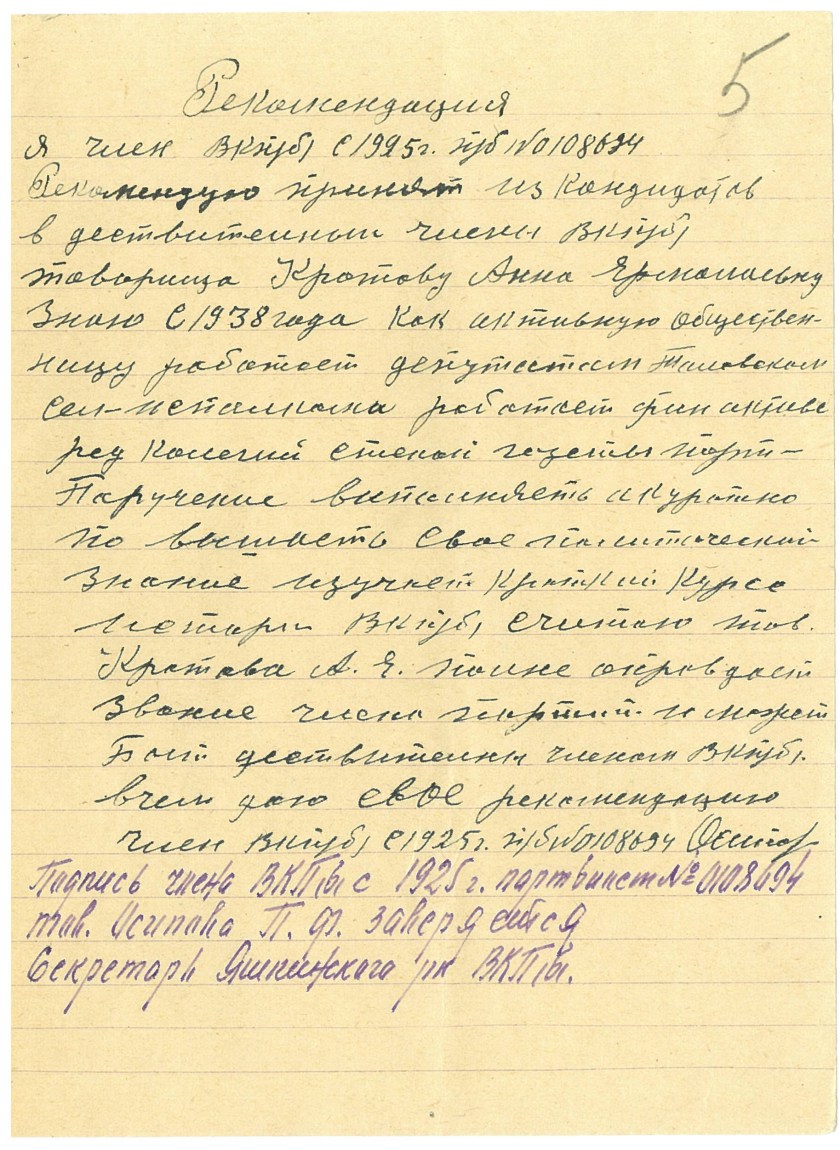 5
Рекомендация
я член ВКп(б) с 1925г. п/б №0108694
Рекомендую принят из кандидатов
в дествителныи члены ВКп(б)
товарища Кротову Анна Ермолаевну
Знаю с 1938 года как активную обществен-
ницу работает депутатам Таловском
сел-исполкома работает фин активе
ред колегий стеной газеты парт-
Паручение выполнять акуратно
по вышаеть свое политический
знание изучает Краткий Курсе
истори ВКп(б) считаю тов.
Кротова А. Е. полне оправдает
звание члена партий и может
Быт дествителны членом ВКп(б).
вчем даю свое рекомендацию
член ВКп(б) с 1925г. п/б №0108694 Осипов
Подпись члена ВКП(б) с 1925 г. партбилет № 0108694
тов. Осипова П. Ф. заверяется
Секретарь Яшкинского рк ВКП(б).